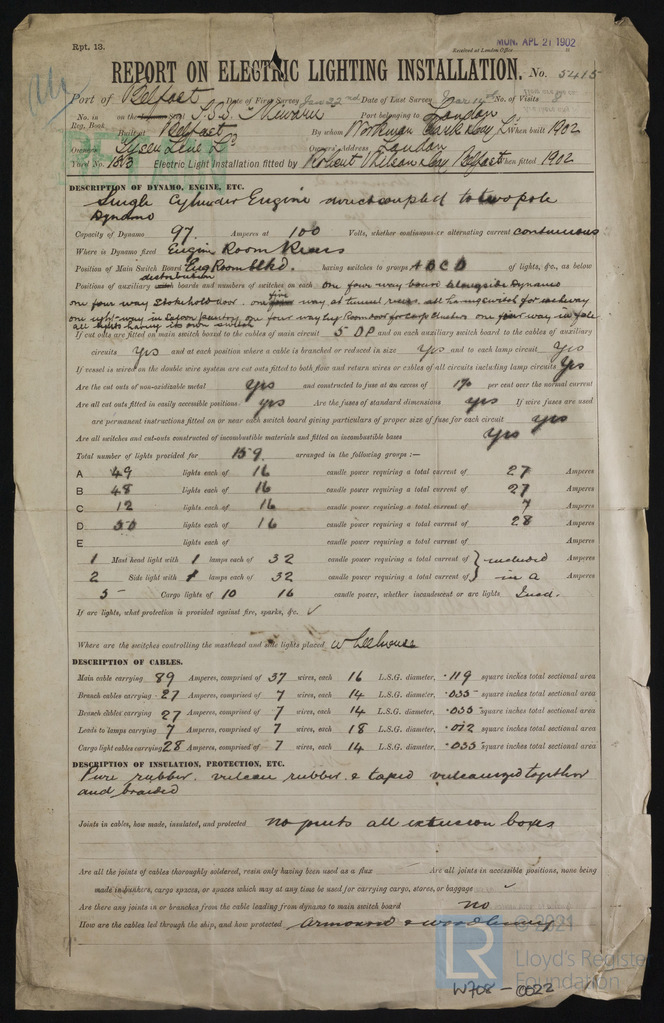 Rpt. 13.
MON. APL 21 1902
Received at London Office
REPORT ON ELECTRIC LIGHTING INSTALLATION. No. 5415
Port of Belfast Date of First Survey Jan 22nd Date of Last Survey Mar 14th No. of Visits 8
No. in Reg. Book on the S.S. Port belonging to London
Built at Belfast By whom Workman Clark & Co Ld When built 1902
Owners Line Ld Owners' Address London
Yard No. 183 Electric Light Installation fitted by Robert & Coy Belfast when fitted 1902
DESCRIPTION OF DYNAMO, ENGINE, ETC.
Single Cylinder Engine direct coupled to two pole
Dynamo
Capacity of Dynamo 97 Amperes at 100 Volts, whether continuous or alternating current continuous
Where is Dynamo fixed Engine Room
Position of Main Switch Board Eng Room blkd. having switches to groups A B C D of lights, &c., as below
distribution
Positions of auxiliary boards and numbers of switches on each one four way board alongside Dynamo
one four way Stokehold door. one five way at tunnel recess. all having switch for each way
one eight-way in Saloon pantry. one four way Eng Room door for cargo clusters one four way in
all having its own switch
If cut outs are fitted on main switch board to the cables of main circuit 5 DP and on each auxiliary switch board to the cables of auxiliary
circuits Yes and at each position where a cable is branched or reduced in size Yes and to each lamp circuit Yes
If vessel is wired on the double wire system are cut outs fitted to both flow and return wires or cables of all circuits including lamp circuits Yes
Are the cut outs of non-oxidizable metal Yes and constructed to fuse at an excess of per cent over the normal current
Are all cut outs fitted in easily accessible positions Yes Are the fuses of standard dimensions Yes If wire fuses are used
are permanent instructions fitted on or near each switch board giving particulars of proper size of fuse for each circuit Yes
Are all switches and cut-outs constructed of incombustible materials and fitted on incombustible bases Yes
Total number of lights provided for 159 arranged in the following groups :—
A 49 lights each of 16 candle power requiring a total current of 27 Amperes
B 48 lights each of 16 candle power requiring a total current of 27 Amperes
C 12 lights each of 16 candle power requiring a total current of 7 Amperes
D 50 lights each of 16 candle power requiring a total current of 28 Amperes
E lights each of candle power requiring a total current of Amperes
1 Mast head light with 1 lamps each of 32 candle power requiring a total current of included Amperes
2 Side light with 1 lamps each of 32 candle power requiring a total current of in A Amperes
5 Cargo lights of 10 16 candle power, whether incandescent or arc lights Incd.
If arc lights, what protection is provided against fire, sparks, &c. ✓
Where are the switches controlling the masthead and side lights placed wheelhouse
DESCRIPTION OF CABLES.
Main cable carrying 89 Amperes, comprised of 37 wires, each 16 L.S.G. diameter, .119 square inches total sectional area
Branch cables carrying 27 Amperes, comprised of 7 wires, each 14 L.S.G. diameter, .035 square inches total sectional area
Branch cables carrying 27 Amperes, comprised of 7 wires, each 14 L.S.G. diameter, .035 square inches total sectional area
Leads to lamps carrying 7 Amperes, comprised of 7 wires, each 18 L.S.G. diameter, .012 square inches total sectional area
Cargo light cables carrying 28 Amperes, comprised of 7 wires, each 14 L.S.G. diameter, .035 square inches total sectional area
DESCRIPTION OF INSULATION, PROTECTION, ETC.
Pure rubber. vulcan rubber. & taped vulcanized together
and braided
Joints in cables, how made, insulated, and protected no joints all extension boxes
Are all the joints of cables thoroughly soldered, resin only having been used as a flux Are all joints in accessible positions, none being
made in bunkers, cargo spaces, or spaces which may at any time be used for carrying cargo, stores, or baggage ✓
Are there any joints in or branches from the cable leading from dynamo to main switch board no
How are the cables led through the ship, and how protected armoured & wood casing
© 2021
LR
Lloyd's Register
Foundation
W708-0022